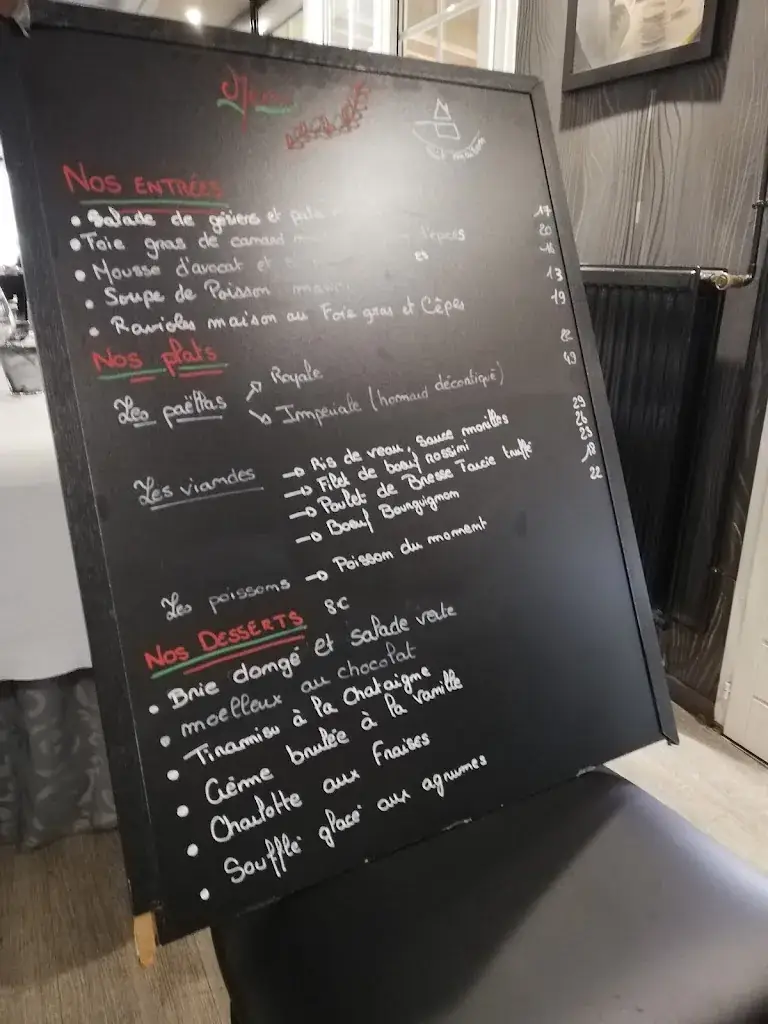 Menu
fait maison
NOS ENTRÉES
• Salade de gésiers et 17
• Foie gras de canard d'épices 20
• Mousse d'avocat et
• Soupe de Poisson maison 13
• Ravioles maison au Foie gras et Cêpes 19
Nos plats
Les paëllas → Royale 22
→ Impériale (homard décortiqué) 49
Les viandes → Ris de veau, sauce morilles 29
→ Filet de boeuf rossini 26
→ Poulet de Bresse Farcie truffé 23
→ Boeuf Bourguignon 18
Les poissons → Poisson du moment 22
NOS DESSERTS 8€
• Brie dongé et salade verte
• moelleux au chocolat
• Tiramisu à la Chataigne
• Crème brulée à la vanille
• Charlotte aux Fraises
• Soufflé glacé aux agrumes